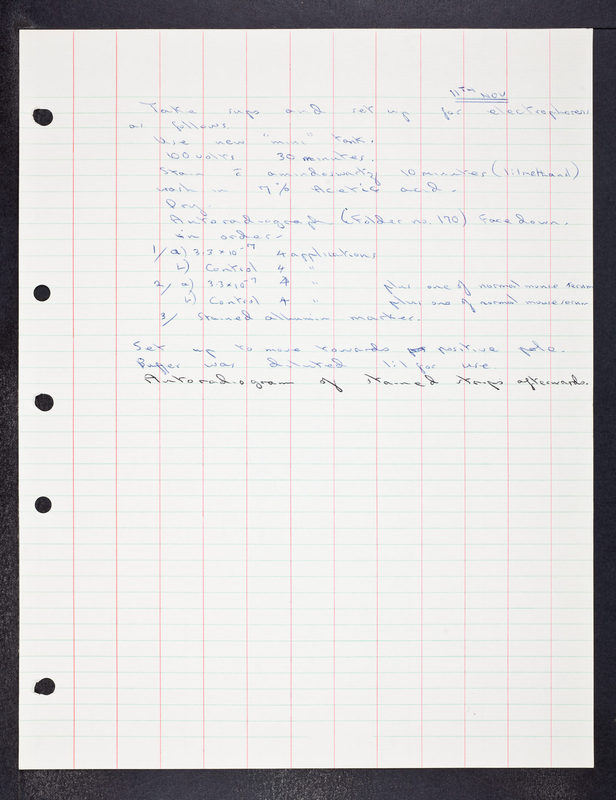 11TH NOV
Take sups and set up for electrophoresis
as follows.
Use new "mini" tank.
100 volts 30 minutes.
Stain c̄ 10 minutes (1:1 methanol)
wash in 7% Acetic acid.
Dry.
Autoradiograph (Folder no. 170) Face down.
in order:-
1/ a) 3.3 x 10⁻⁷ 4 applications
b) Control 4 "
2/ a) 3.3 x 10⁻⁷ 4 " plus one of normal mouse serum
b) Control 4 " plus one of normal mouse serum
3/ Stained albumin marker.
Set up to move towards positive pole.
Buffer was diluted 1:1 for use.
Autoradiogram of stained strips afterwards.